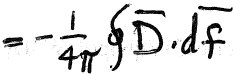 = -\frac{1}{4\pi} \oint \overline{D} \cdot \overline{df}